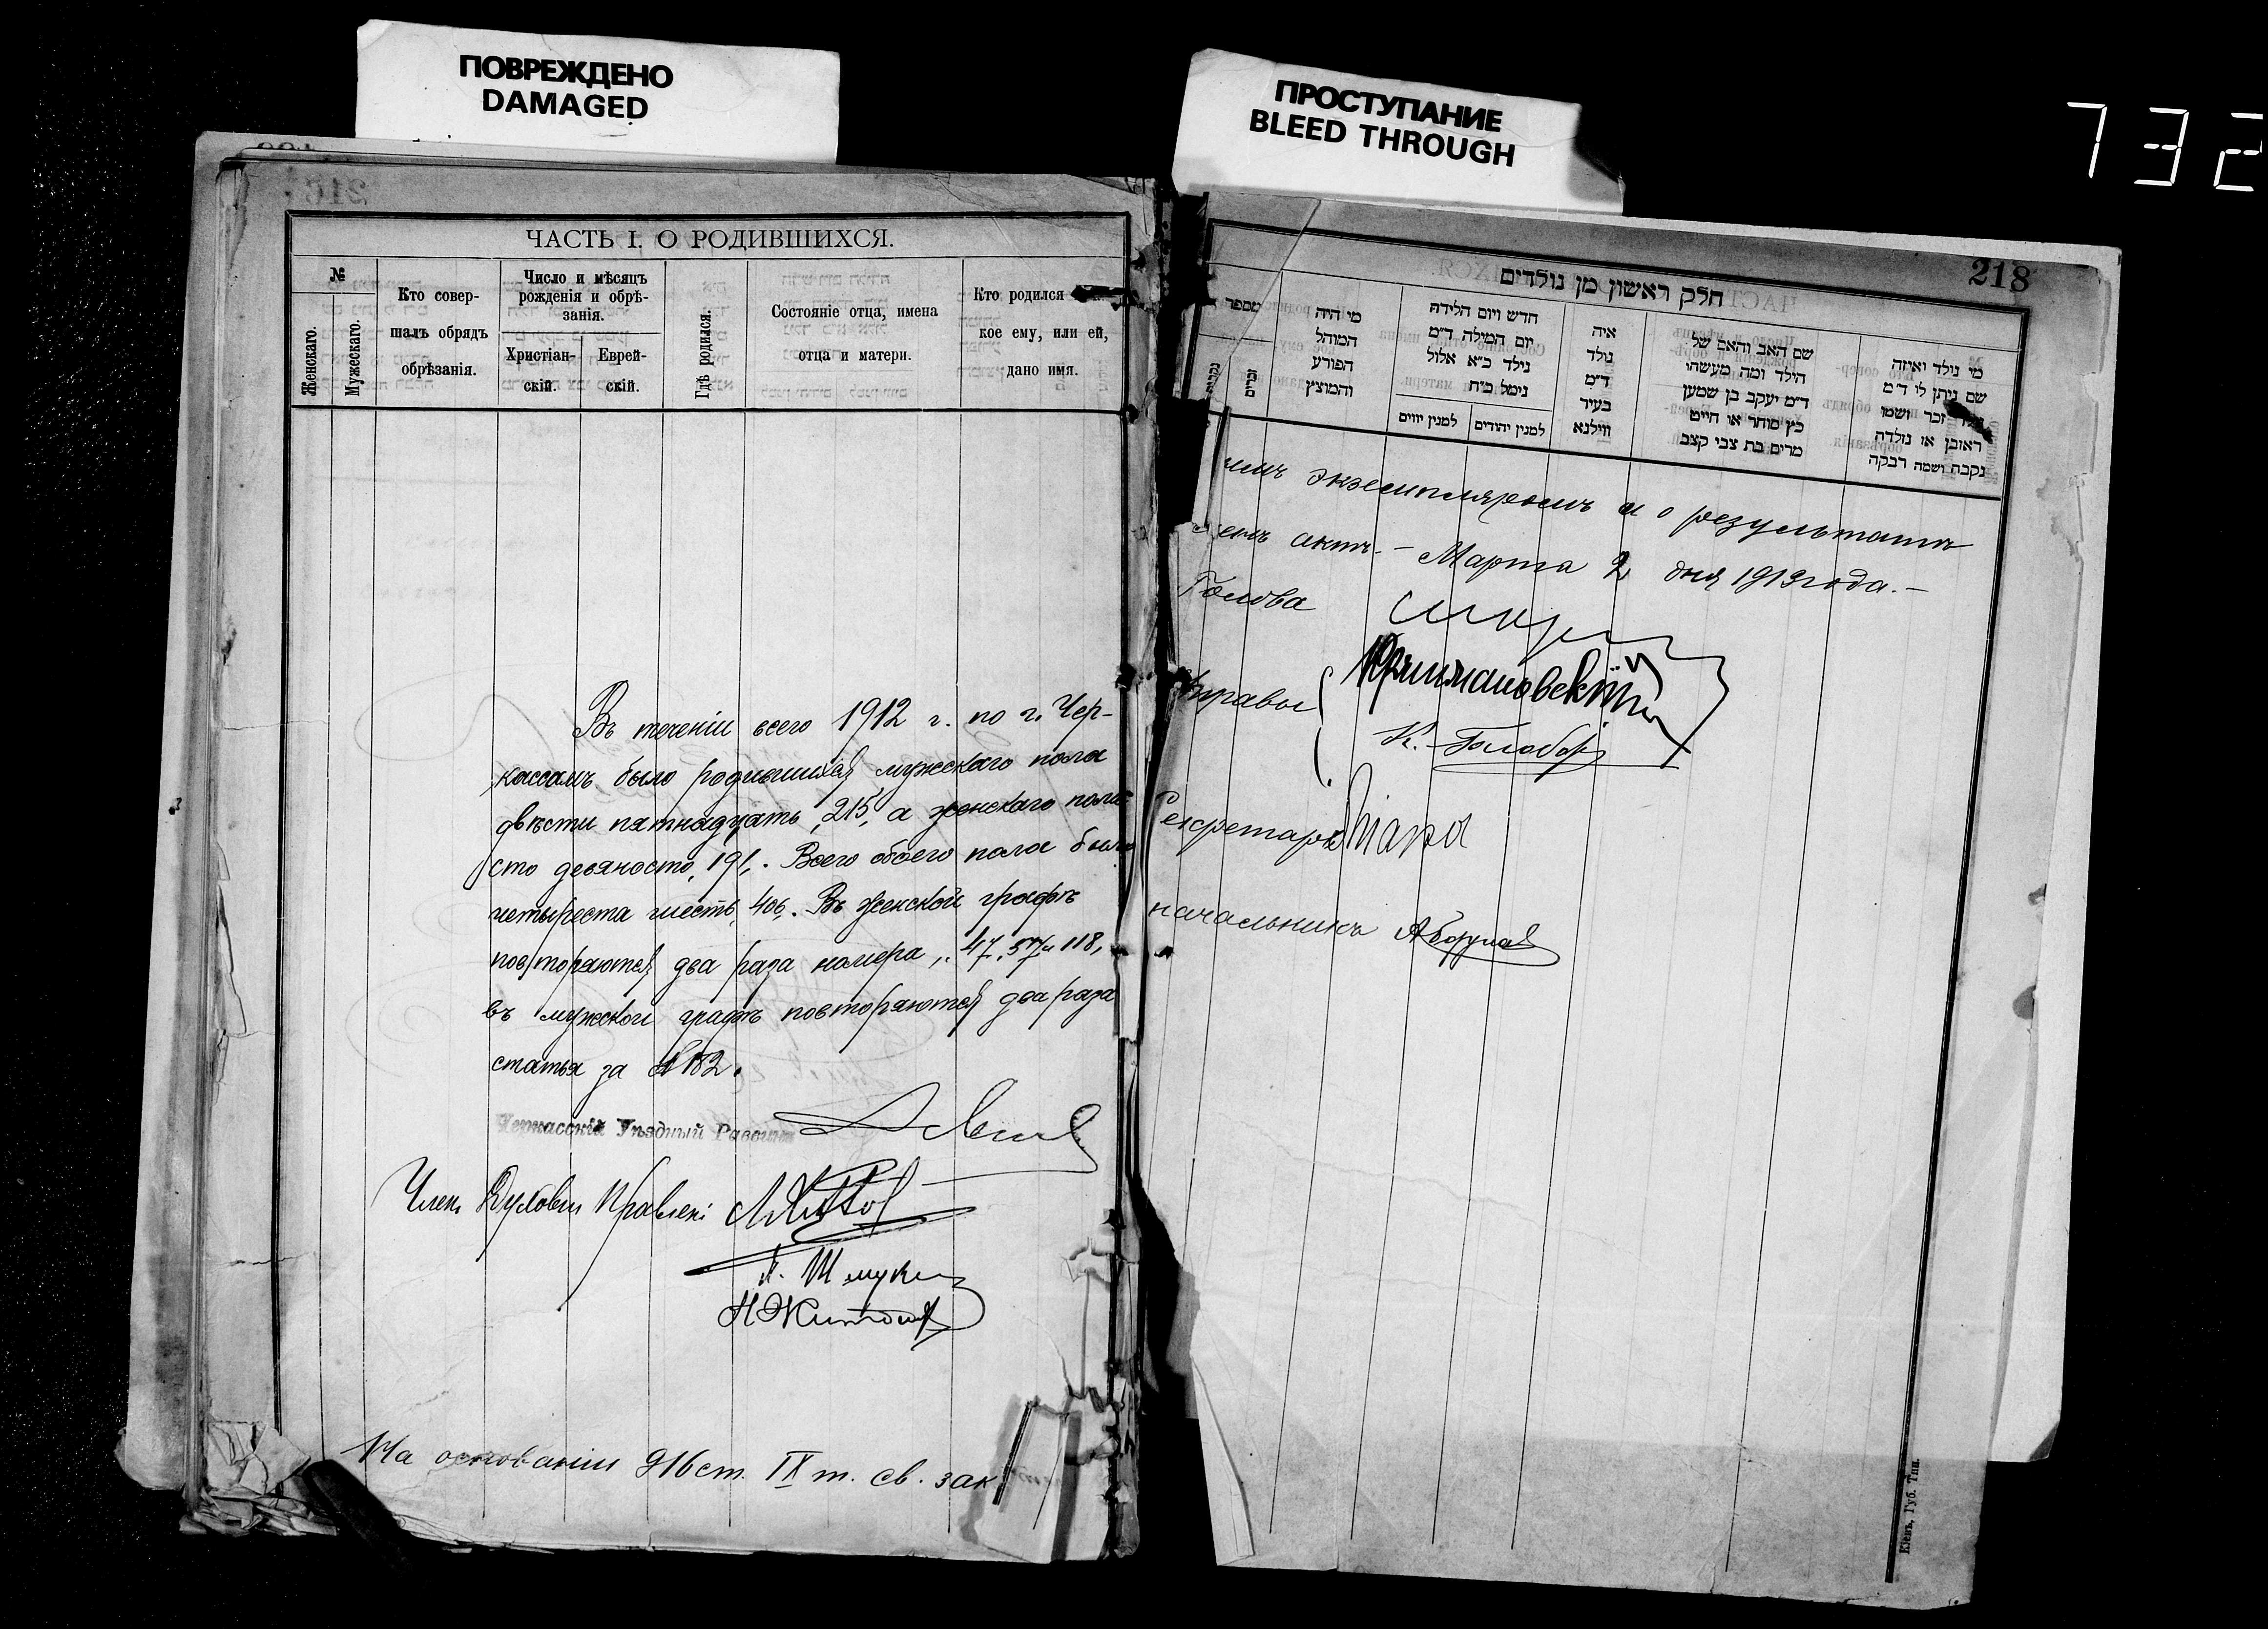 ПОВРЕЖДЕНО
DAMAGED
ПРОСТУПАНИЕ
BLEED THROUGH
732
ЧАСТЬ I. О РОДИВШИХСЯ.
№
Женскаго.
Мужескаго.
Кто совер-
шалъ обрядъ
обрѣзанія.
Число и мѣсяцъ
рожденія и обрѣ-
занія.
Христіан-
скій.
Еврей-
скій.
Гдѣ родился.
Состояніе отца, имена
отца и матери.
Кто родился
кое ему, или ей,
дано имя.
Въ теченіи всего 1912 г. по г. Чер-
кассамъ было родившихся мужескаго пола
двѣсти пятнадцать, 215, а женскаго пола
сто девяносто, 191,. Всего обоего пола было
четыреста шесть, 406,. Въ женской графѣ
повторяются два раза номера, 47, 57 и 118,
въ мужской графѣ повторяются два раза
статья за №182.
Черкасскій Уѣздный Раввинъ
Член Духовн Правлені
На основаніи 916 ст. IX т. св. зак.
218
חלק ראשון מן נולדים
מספר
נקבות
זכרים
מי היה
המוהל
הפורע
והמוצץ
חדש ויום הלידה
יום המילה ד״מ
נולד כ״א אלול
נימל כ״ח
למנין יווים
למנין יהודים
איה
נולד
ד״מ
בעיר
ווילנא
שם האב והאם של
הילד ומה מעשהו
ד״מ יעקב בן שמען
כץ סוחר או חייט
מרים בת צבי קצב
מי נולד ואיזה
שם ניתן לו ד״מ
זכר ושמו
ראובן או נולדה
נקבה ושמה רבקה
экземпляромъ и о результатѣ
актъ. – Марта 2 дня 1913 года. –
Голова
Управы
К. Голобор
Секретарь
начальникъ
Кіевъ, Губ. Тип.